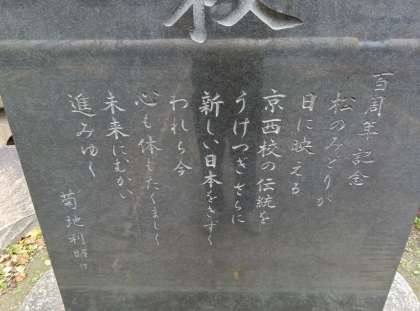 校
百周年記念
松のみどりが
日に映える
京西校の伝統を
うけつぎさらに
新しい日本をきずく
われら今
心も体もたくましく
未来にむかい
進みゆく
菊地利昭